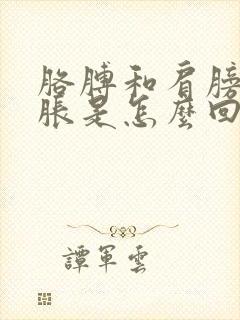 胳膊和肩膀
脹是怎麼回
譚軍雲